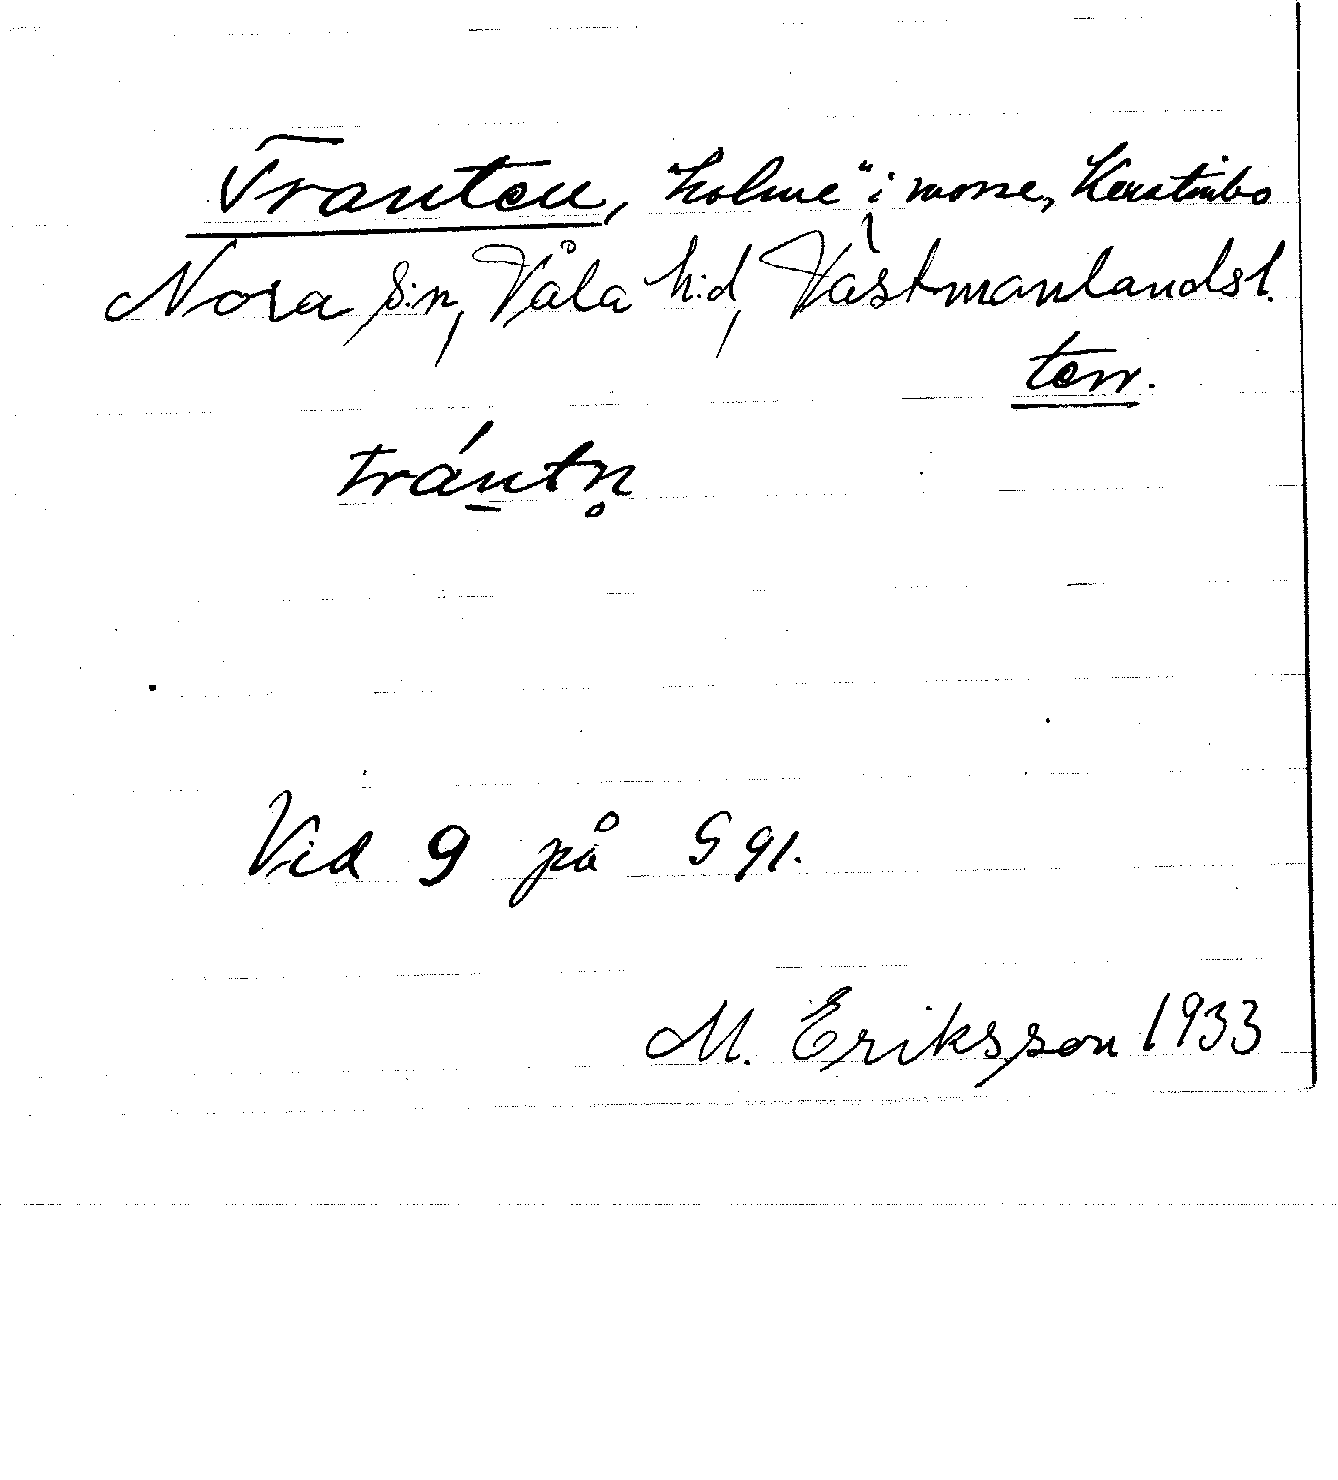 Tranten, "holme" i mosse, Kerstinbo
Nora s:n, Våla h:d, Västmanlandsl.
terr.
trántn̥
Vid 9 på G 91.
M. Eriksson 1933